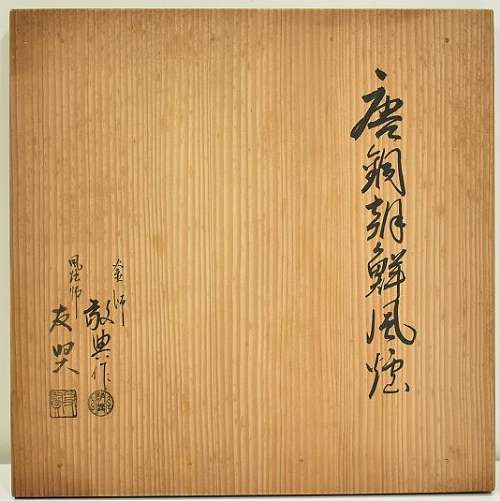 唐銅朝鮮風炉
釜師
敬典作
風炉師
友哭